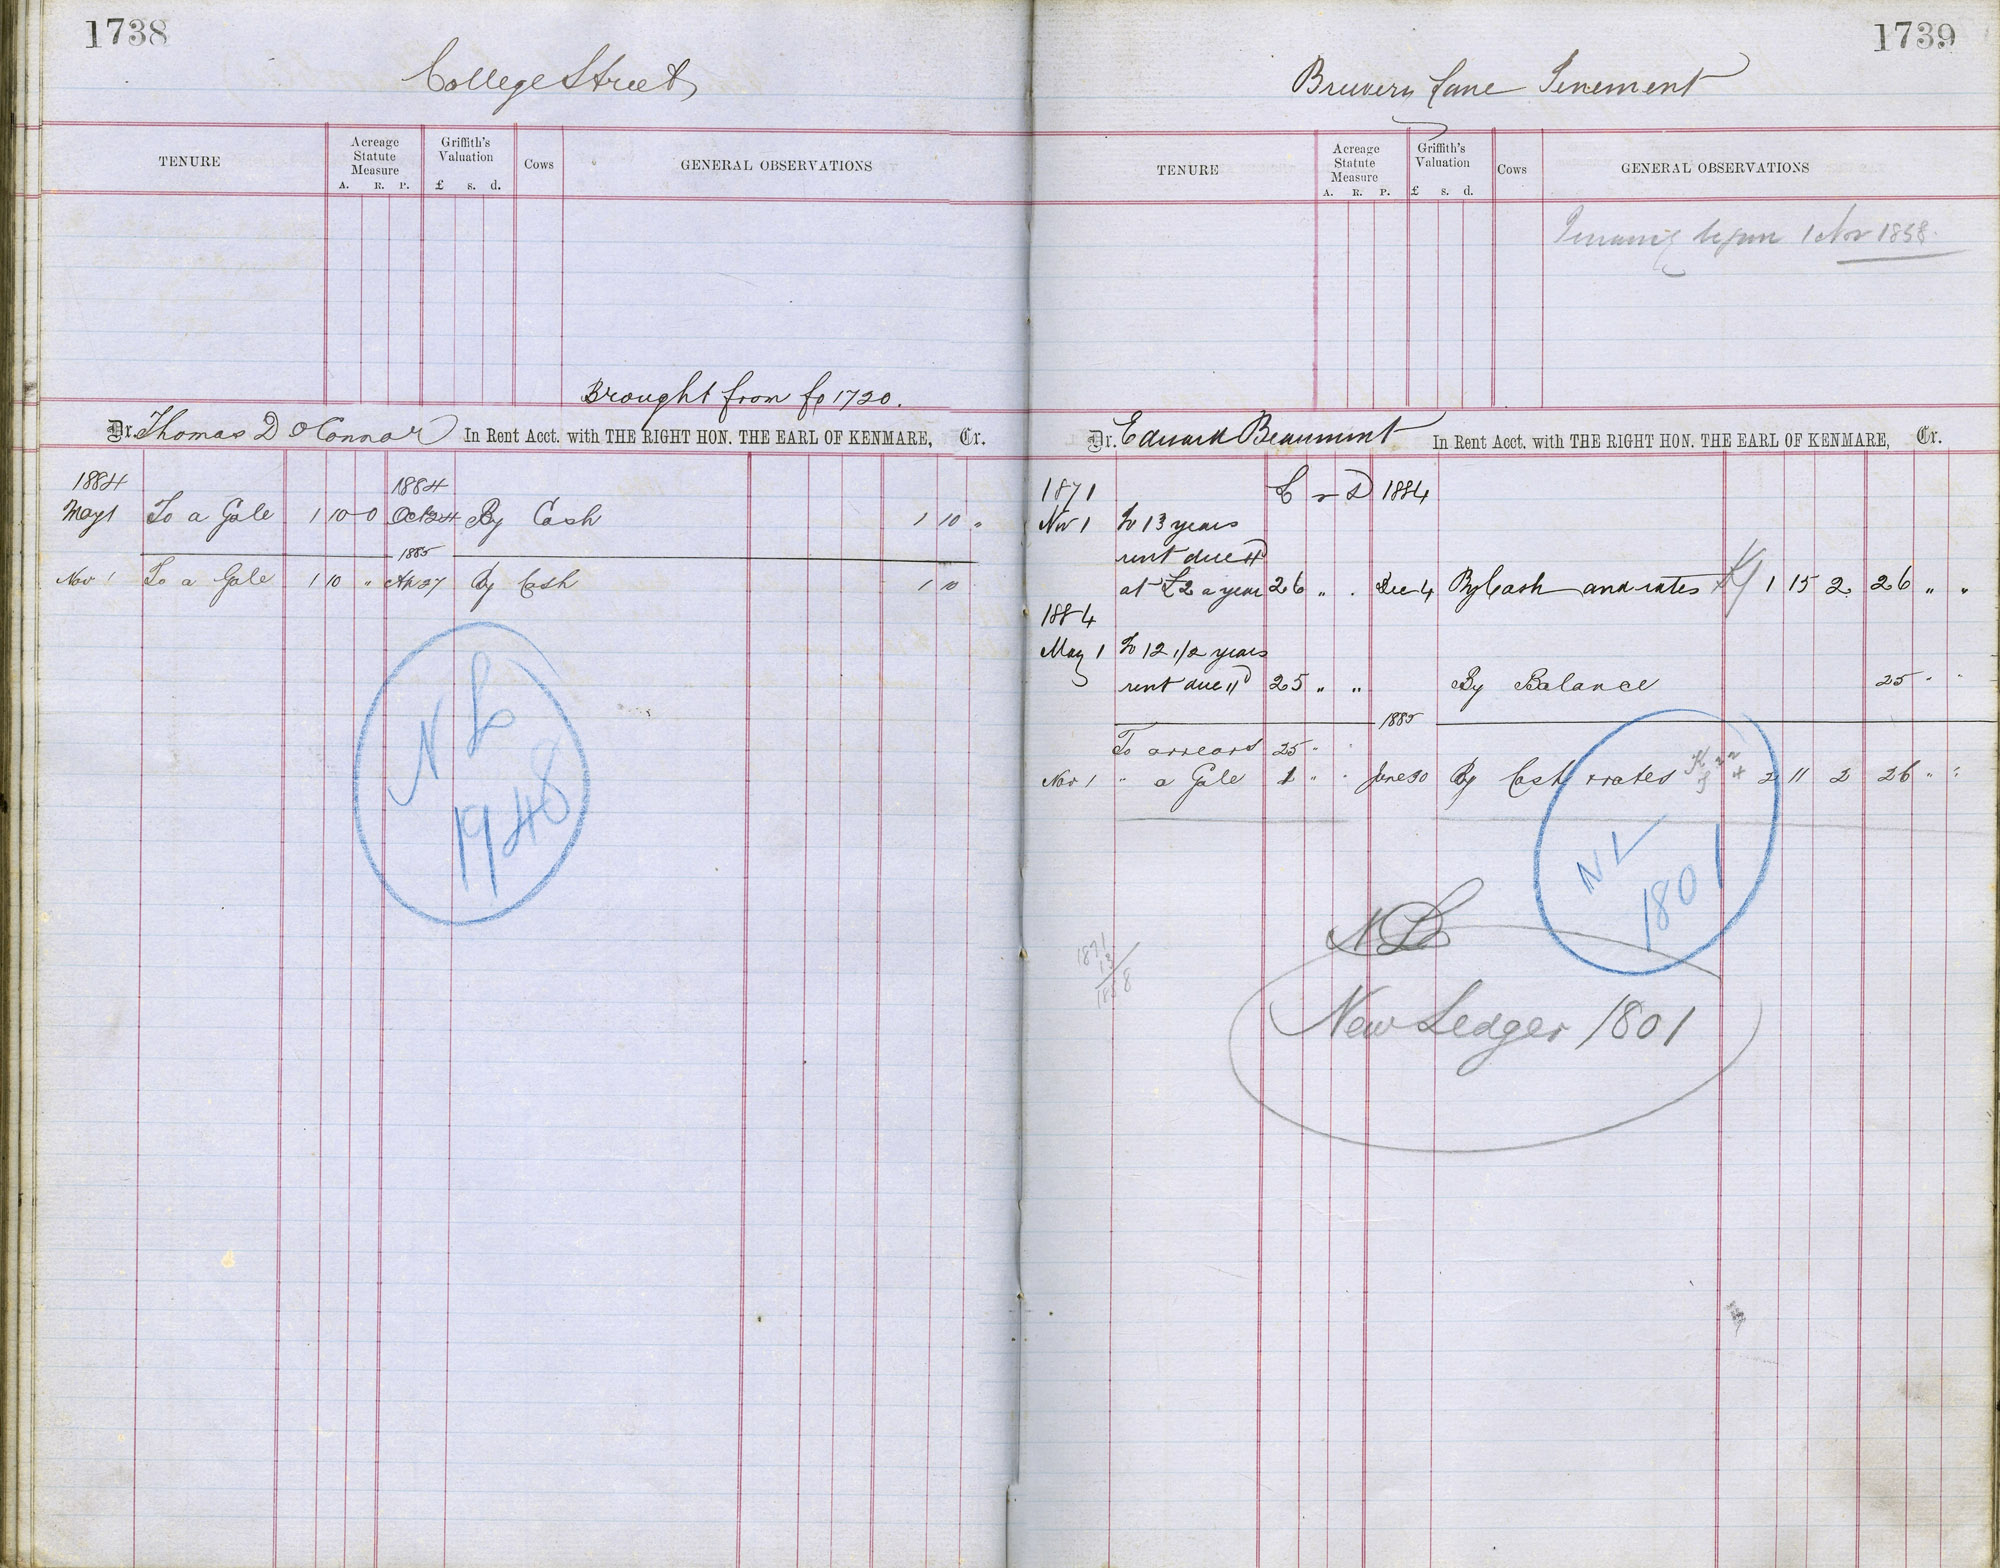 1738
College Street
TENURE
Acreage Statute Measure
A. R. P.
Griffith's Valuation
£ s. d.
Cows
GENERAL OBSERVATIONS
Brought from fo 1720.
Dr. Thomas D O'Connor In Rent Acct. with THE RIGHT HON. THE EARL OF KENMARE, Cr.
1884 1884
May 1 To a Gale 1 10 0 Oct 24 By Cash 1 10 "
1885
Nov 1 To a Gale 1 10 " Ap 27 By Cash 1 10
N L
1948
1739
Brewery Lane Tenement
TENURE
Acreage Statute Measure
A. R. P.
Griffith's Valuation
£ s. d.
Cows
GENERAL OBSERVATIONS
Tenancy began 1 Nov 1858.
Dr. Edward Beaumont In Rent Acct. with THE RIGHT HON. THE EARL OF KENMARE, Cr.
1871 £ s D 1884
Nov 1 To 13 years
rent due
at £2 a year 26 " . Dec 4 By Cash and rates 1 15 2 26 " "
1884
May 1 To 12 1/2 years
rent due 25 " " By Balance 25 " "
1885
To arrears 25 " "
Nov 1 " a Gale 1 " " June 30 By Cash & rates 2 11 2 26 " "
N L
1801
NL
1871
13
1858
New Ledger 1801